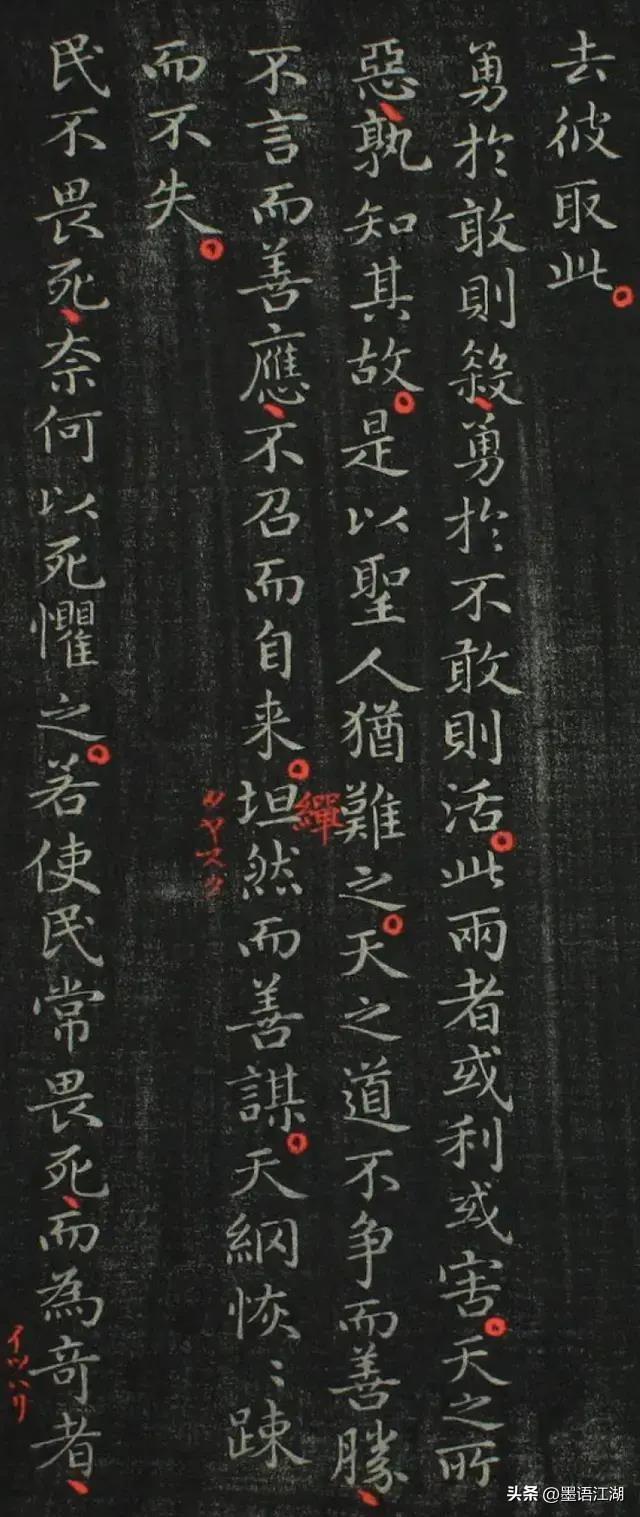 去彼取此。
勇於敢則殺、勇於不敢則活。此兩者或利或害。天之所
惡、孰知其故。是以聖人猶難之。天之道不爭而善勝、
不言而善應、不召而自来。坦然而善謀。天網恢〻踈
繟
而不失。
民不畏死、奈何以死懼之。若使民常畏死、而為奇者、
イツハリ
头条 @墨语江湖